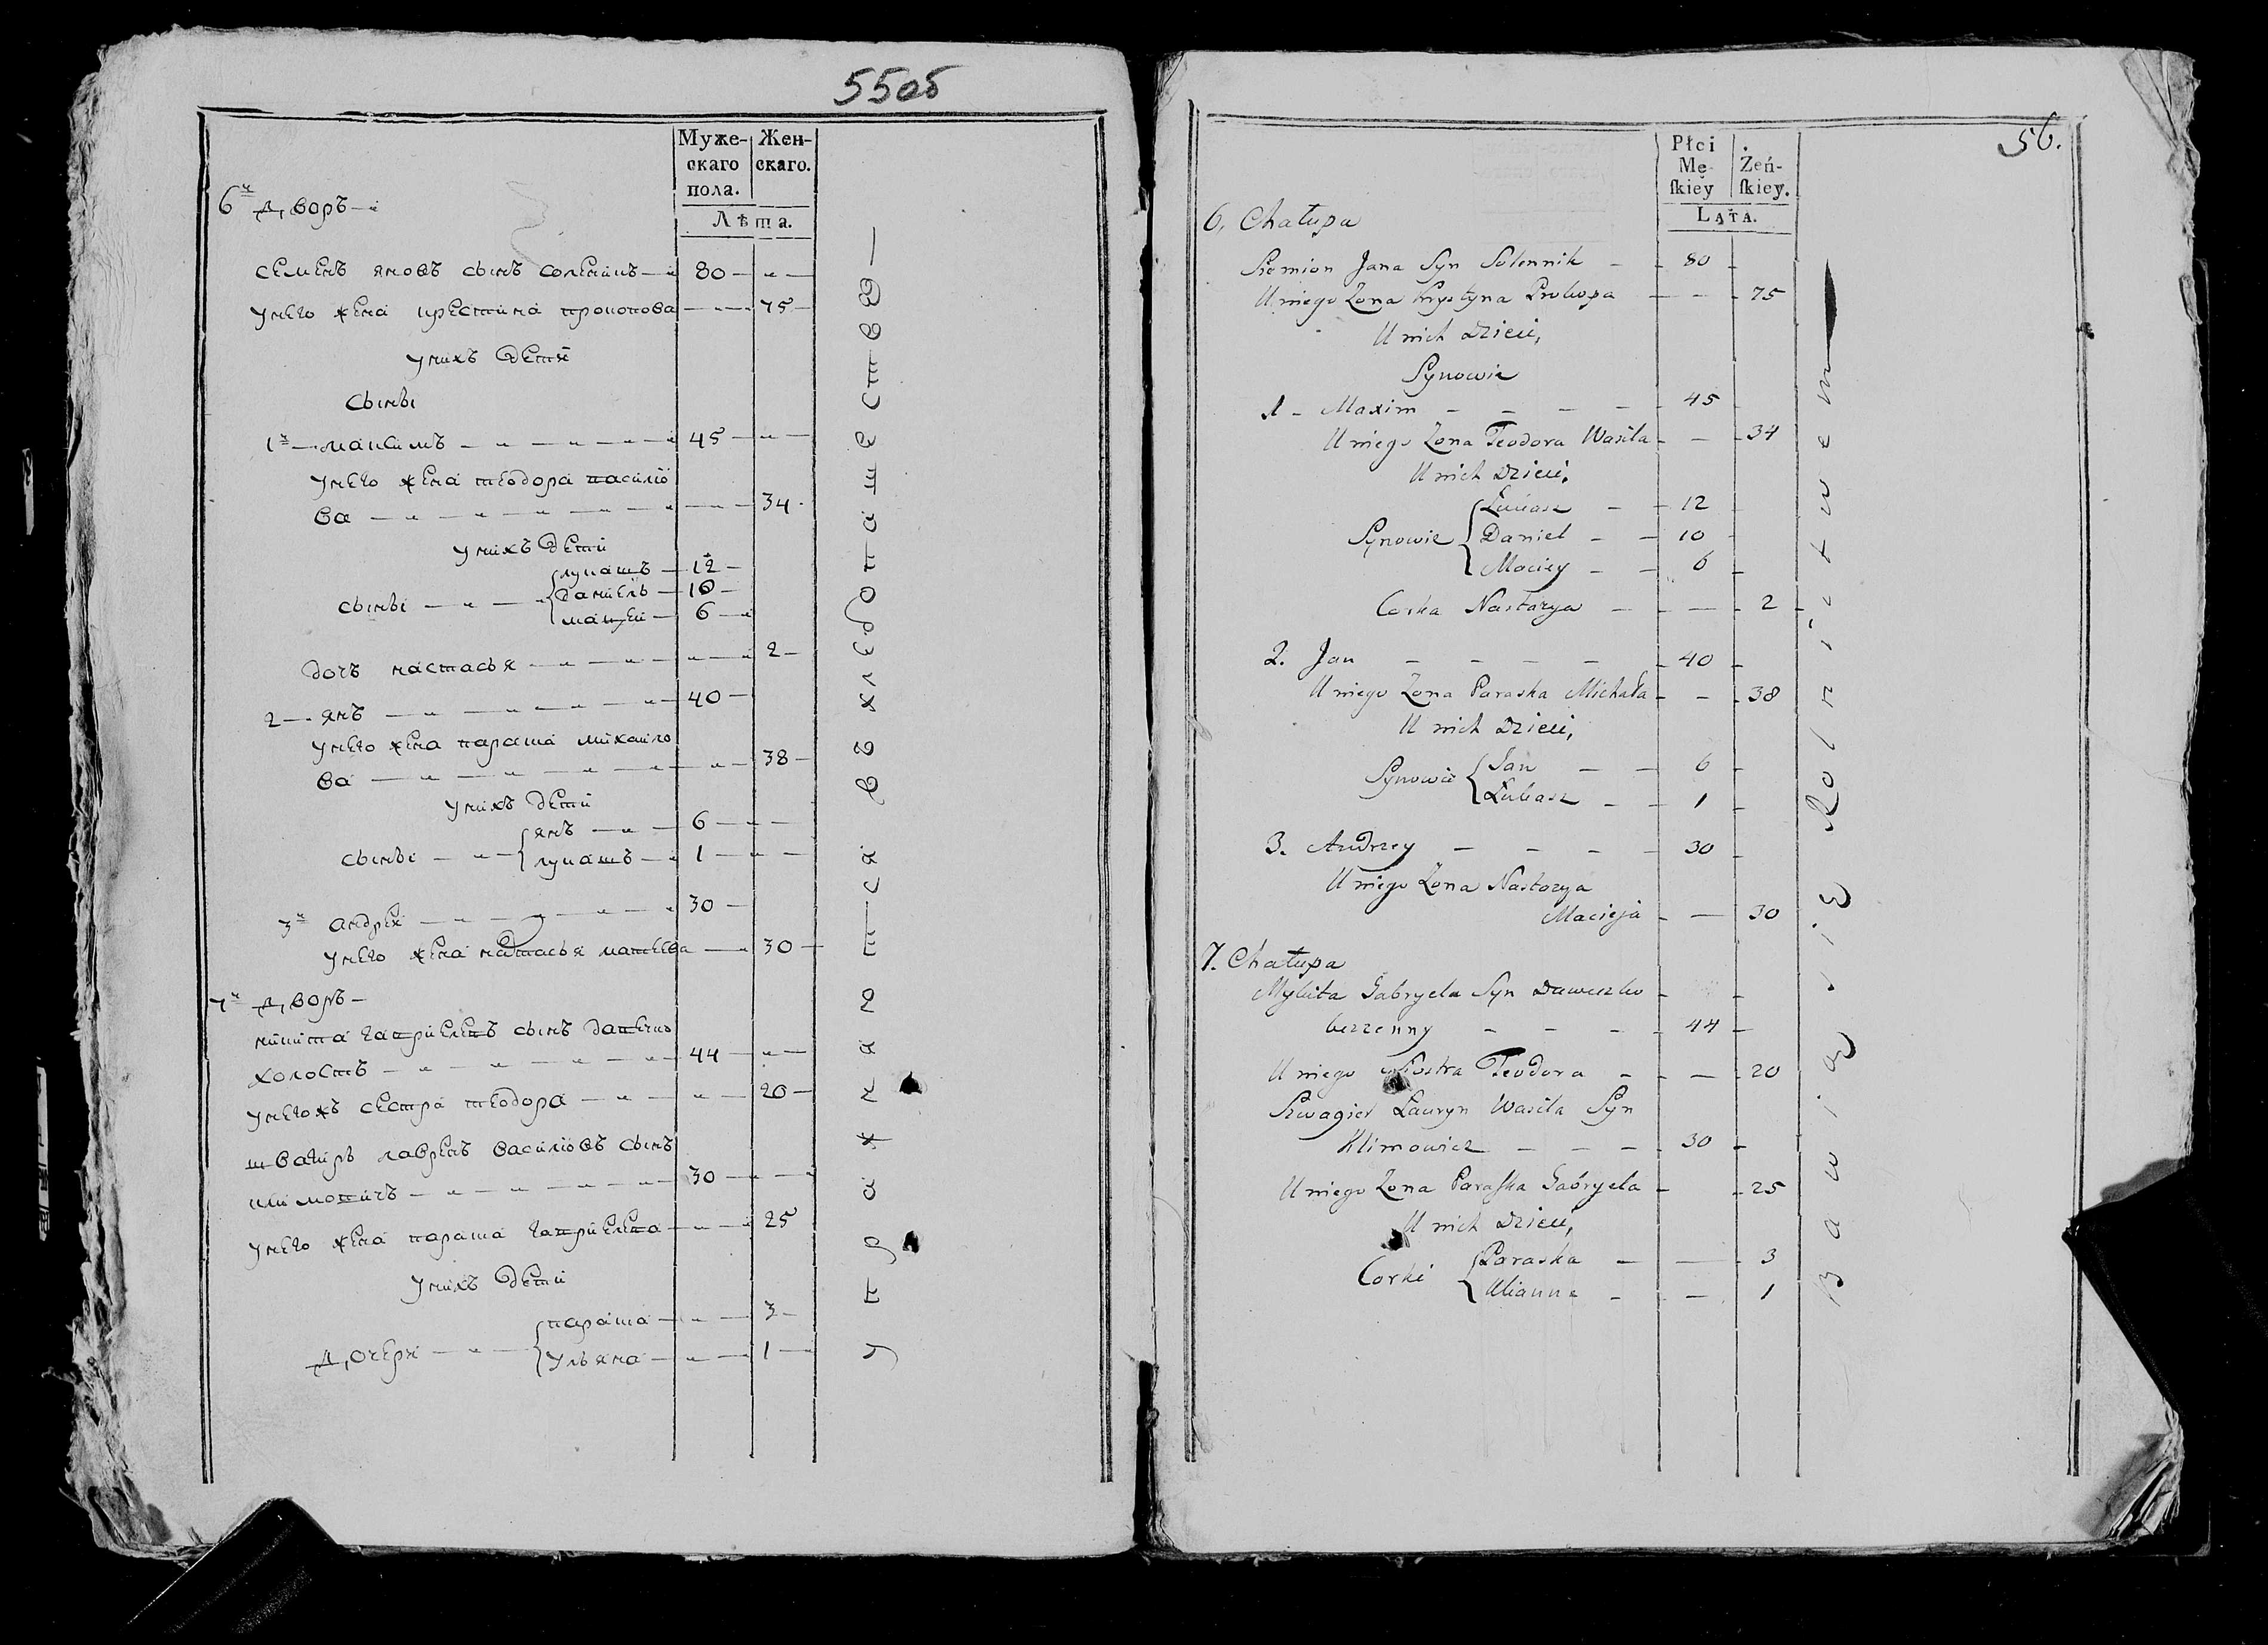 55об
Муже-
скаго
пола.
Жен-
скаго.
Лѣта.
6й дворъ
Семенъ яновъ сынъ
80
у него жена крестина прокопова
75
у нихъ дети
сыны
1й максимъ
45
у него жена теодора василіо
ва
34
у нихъ дети
лукашъ
12
сыны
даниелъ
10
мацей
6
дочъ настасья
2
2 янъ
40
у него жена параша михаило
ва
38
у нихъ дети
янъ
6
сыны
лукашъ
1
3й андрей
30
у него жена настасья
30
7й дворъ
никита гавриелевъ сынъ
холостъ
44
сестра теодора
20
швагиръ лавренъ василіовъ сынъ
климовичъ
30
у него жена параша гавриелева
25
у нихъ дети
параша
3
дочери
ульяна
1
56.
Płci
Mę-
ſkiey
Żeń-
ſkiey.
LATA.
6. Chałupa
Siemion Jana Syn Solennik
80
U niego Zona Krystyna Prokopa
75
U nich Dzieci,
Synowie
1 - Maxim
45
U niego Zona Teodora Wasila
34
U nich Dzieci,
Łukasz
12
Synowie
Daniel
10
Maciey
6
Corka Nastazya
2
2. Jan
40
U niego Zona Paraska Michała
38
U nich Dzieci,
Jan
6
Synowie
Łukasz
1
3. Andrzey
30
U niego Zona Nastazya
Macieja
30
7. Chałupa
Mykita Gabryela Syn
bezzenny
44
U niego Siostra Teodora
20
Szwagier Lauryn Wasila Syn
Klimowicz
30
U niego Zona Paraſka Gabryela
25
U nich Dzieci,
Paraska
3
Corki
Ulianna
1
Bawią się Rolnictwem